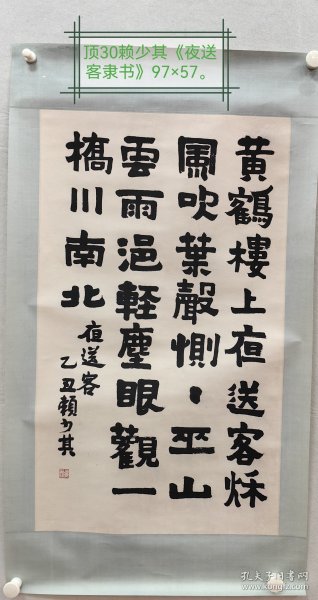 顶30赖少其《夜送
客隶书》97×57。
黄鶴樓上夜送客秌
風吹葉聲惻〻巫山
雲雨浥軽塵眼觀一
橋川南北
夜送客
乙丑賴少其
孔夫子旧书网
www.kongfz.com